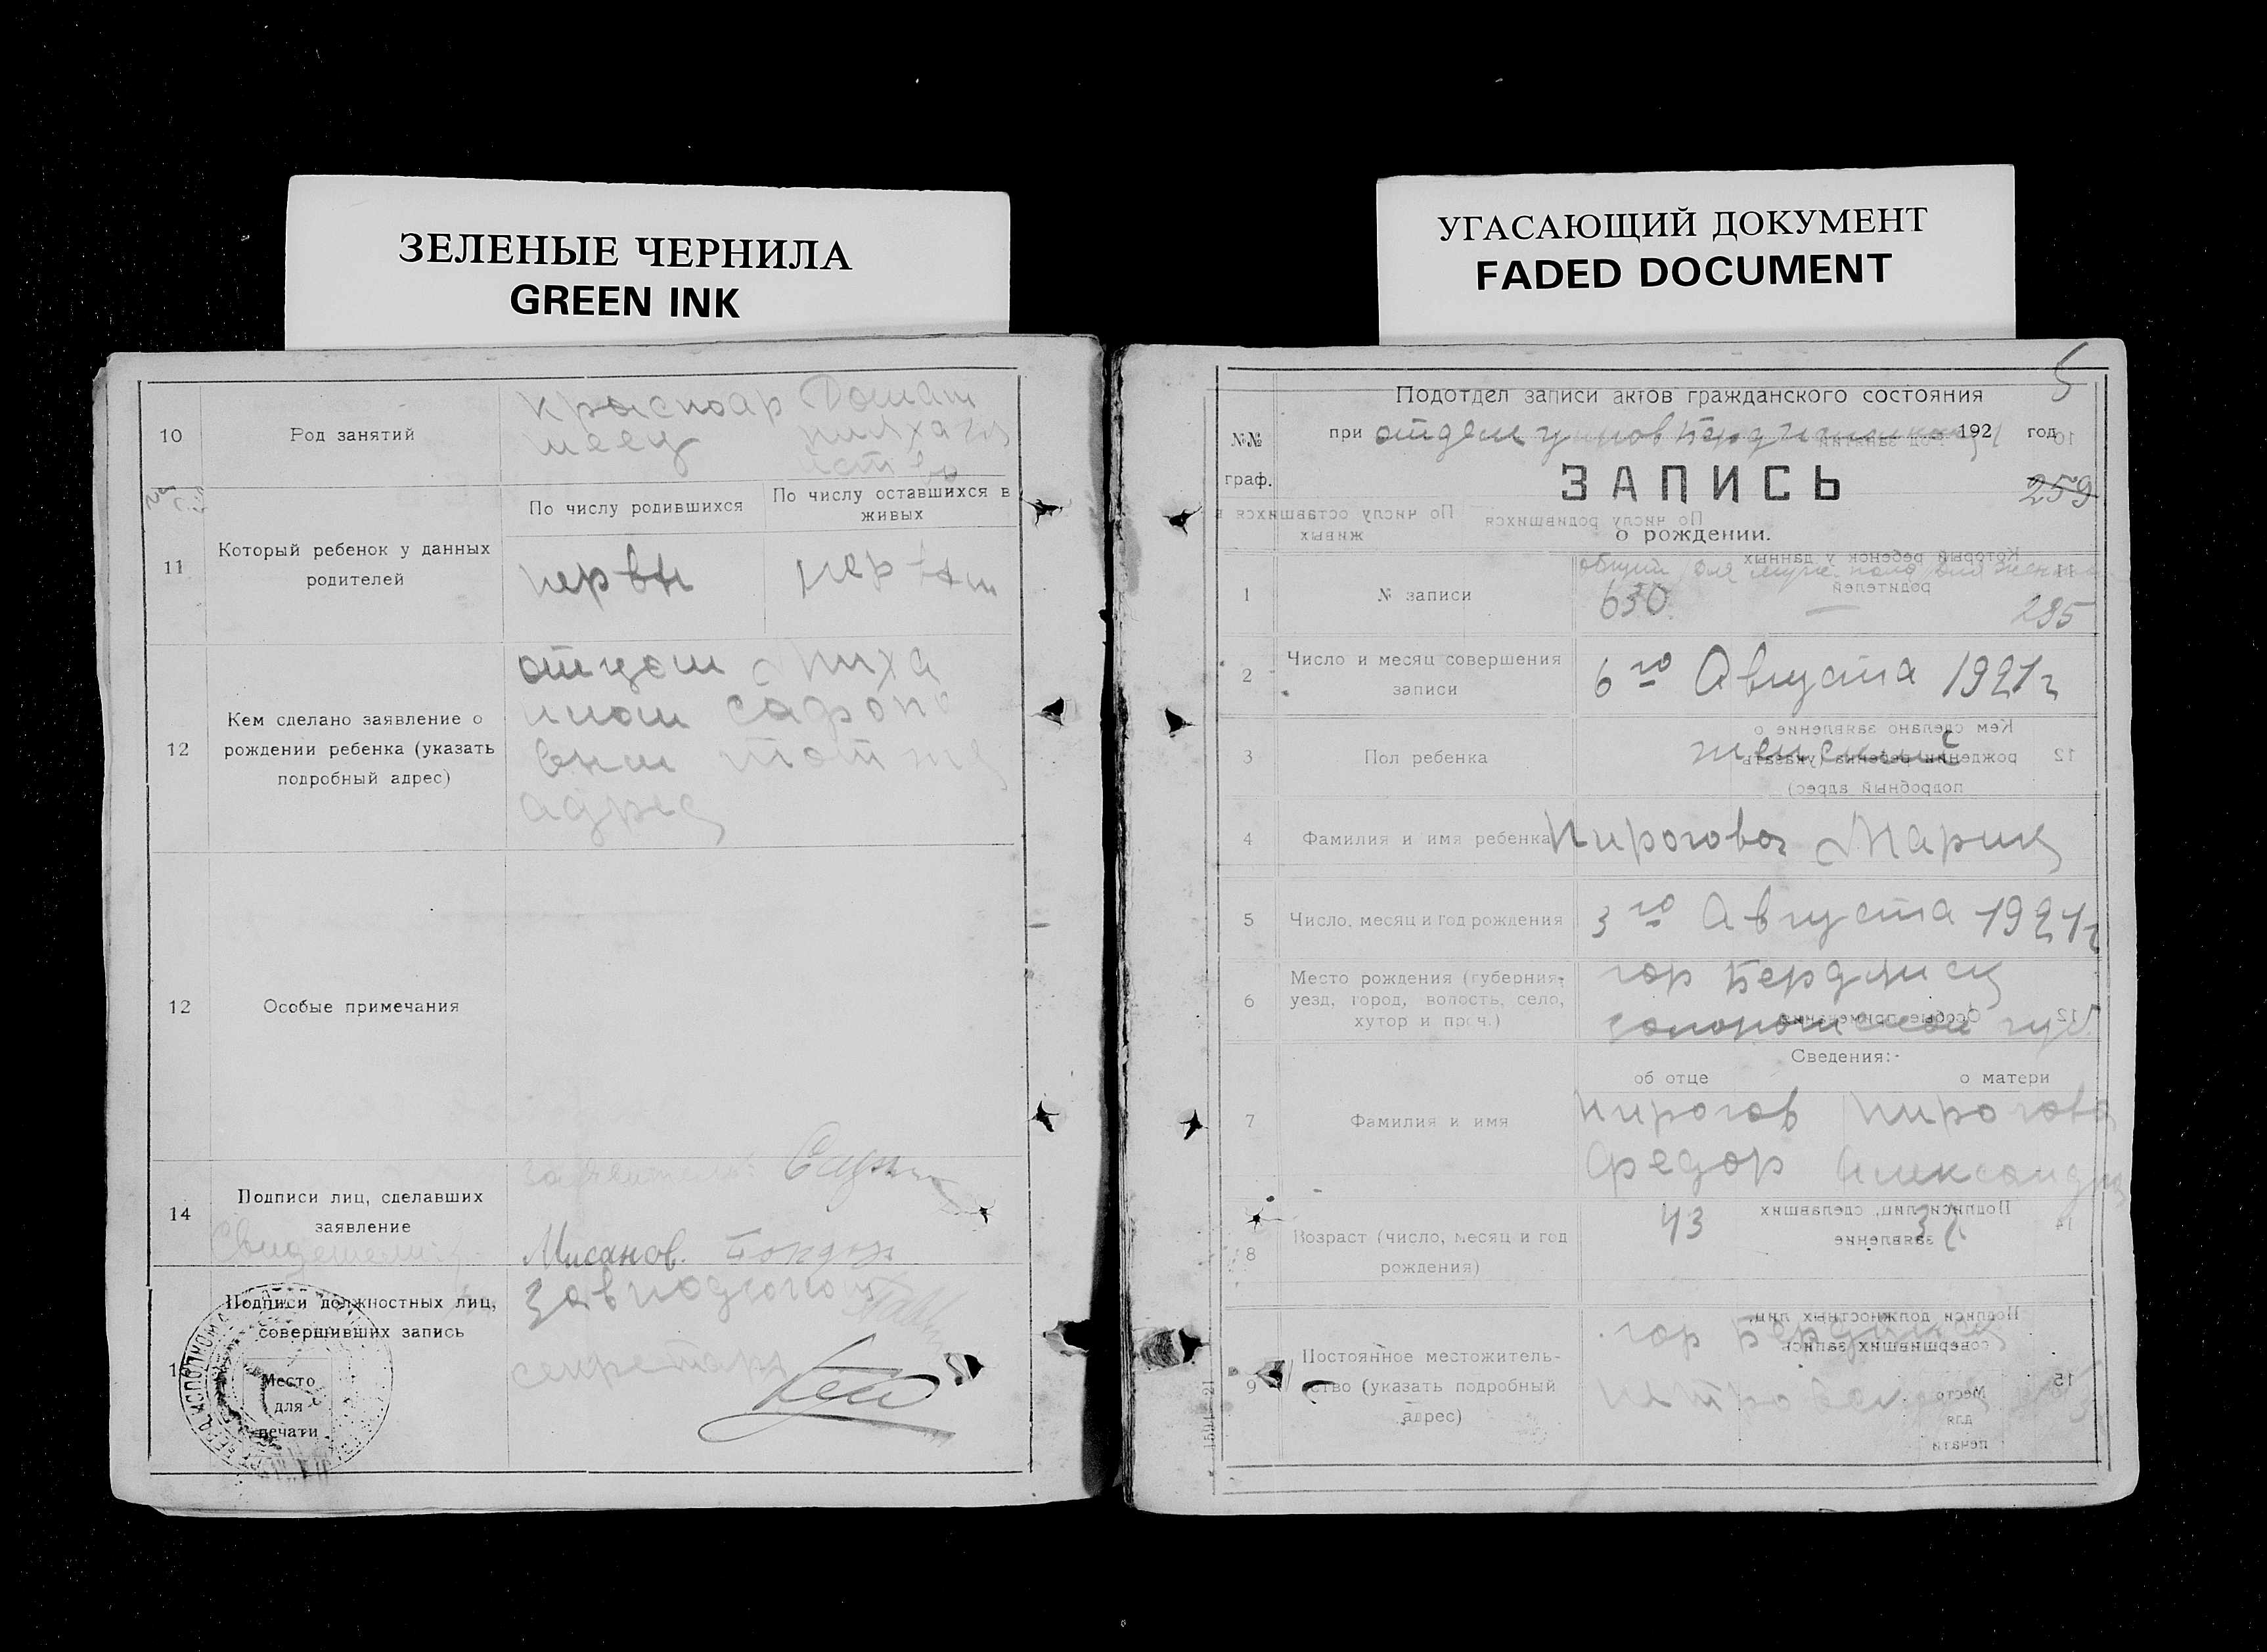 ЗЕЛЕНЫЕ ЧЕРНИЛА
GREEN INK
УГАСАЮЩИЙ ДОКУМЕНТ
FADED DOCUMENT
10
Род занятий
Красноар
меец
Домаш
11
Который ребенок у данных
родителей
По числу родившихся
По числу оставшихся в
живых
первы
12
Кем сделано заявление о
рождении ребенка (указать
подробный адрес)
отцом Миха
илом Сафоно
вым тот же
адрес
12
Особые примечания
14
Подписи лиц, сделавших
заявление
Свидетели:
заявитель:
Мисанов.
Подписи должностных лиц,
совершивших запись
Место
для
печати
Завподотом
секретарь
5
Подотдел записи актов гражданского состояния
№№
граф.
при отделе 1921 год
ЗАПИСЬ
259
о рождении.
1
№ записи
общий для муж. пола для женск
630.
—
295
2
Число и месяц совершения
записи
6го Августа 1921 г
3
Пол ребенка
женский
4
Фамилия и имя ребенка
Пирогова Мария
5
Число, месяц и год рождения
3го Августа 1921 г
6
Место рождения (губерния,
уезд, город, волость, село,
хутор и проч.)
гор Бердянск
Запорожской губ
Сведения:-
об отце
о матери
7
Фамилия и имя
Пирогов
Федор
Пирогова
Александра
8
Возраст (число, месяц и год
рождения)
43
9
Постоянное местожитель-
ство (указать подробный
адрес)
гор Бердянск